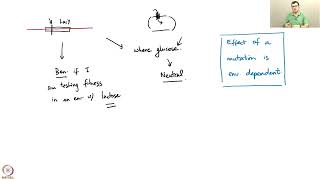 where glucose
Ben. if I
am testing fitness
in an env w/ lactose
Neutral.
Effect of a
mutation is
env dependent